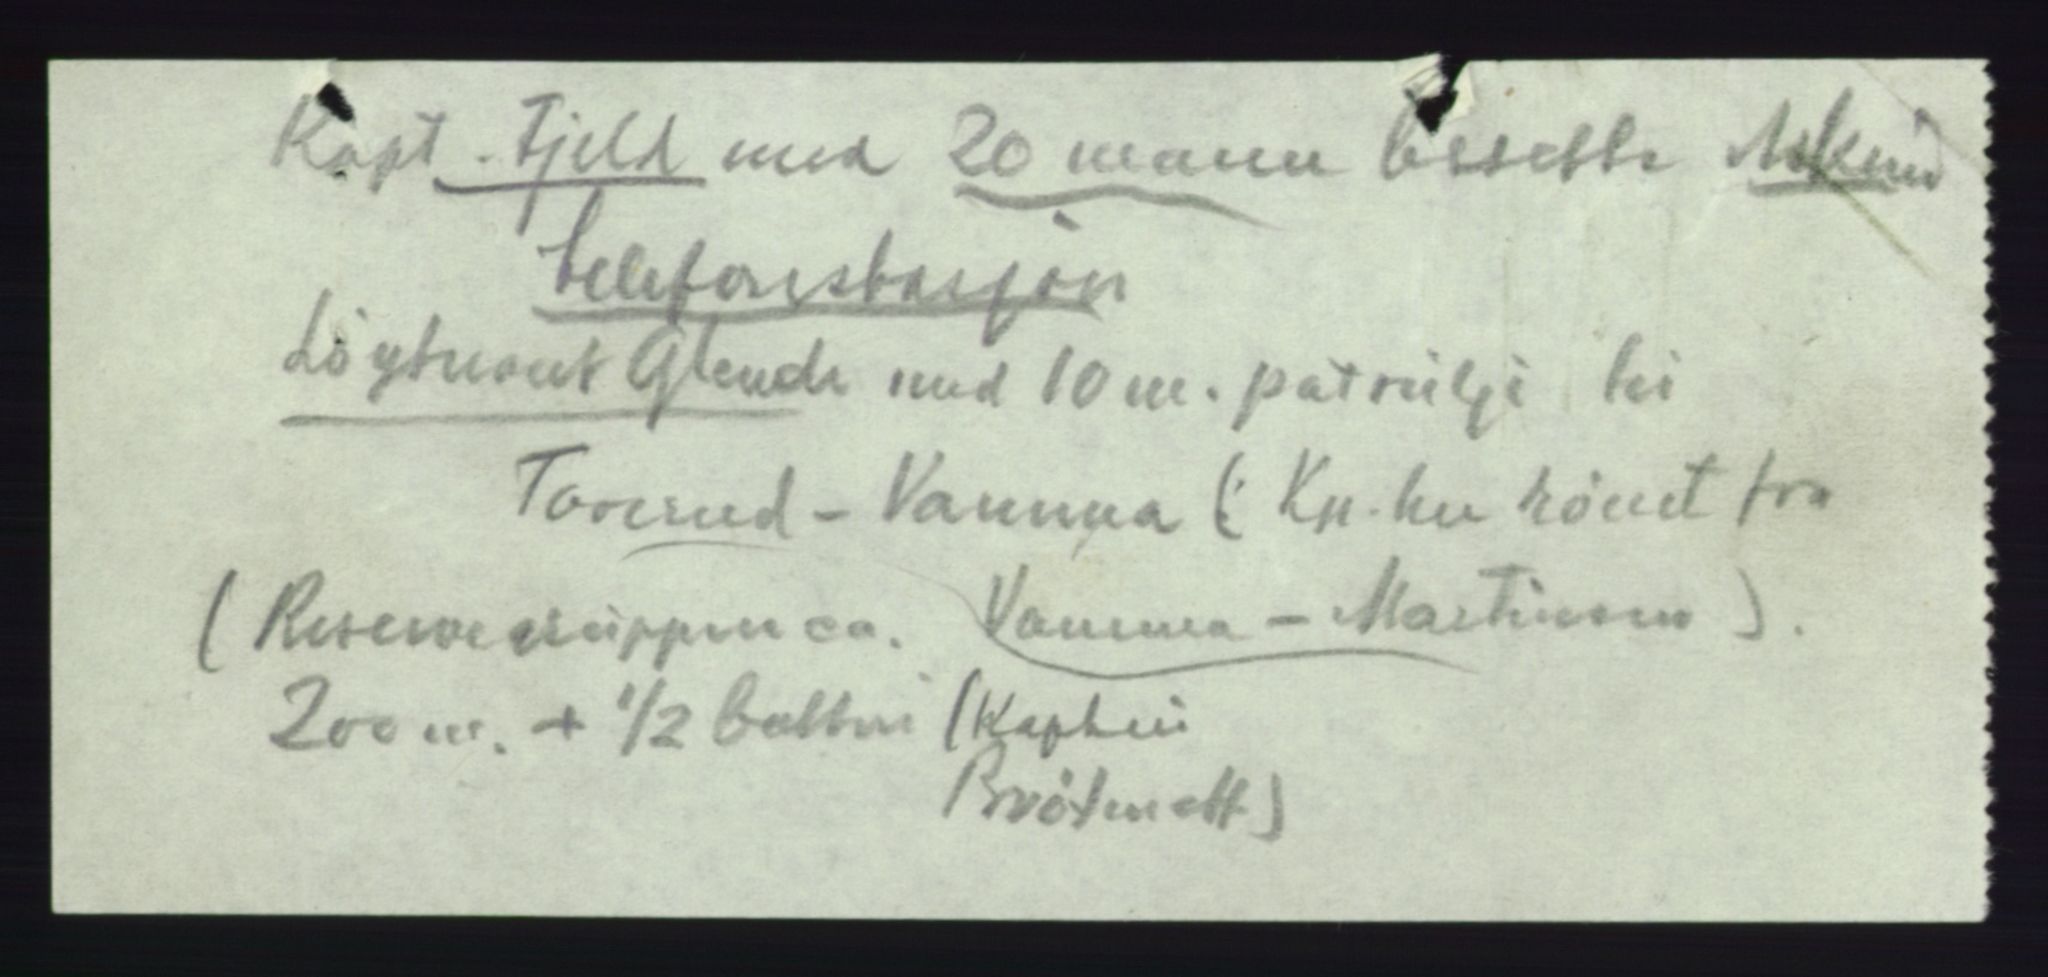 Kapt. Fjeld med 20 mann besette Askim
telefonstasjon
Löytnant Glende med 10 m. patrulje til
Toserud - Vamma (: Kp. her rönet fra
(Reservegruppen ca. Vamma - Martinsen).
200 m. + 1/2 battri (Kaptein
Brötmett)